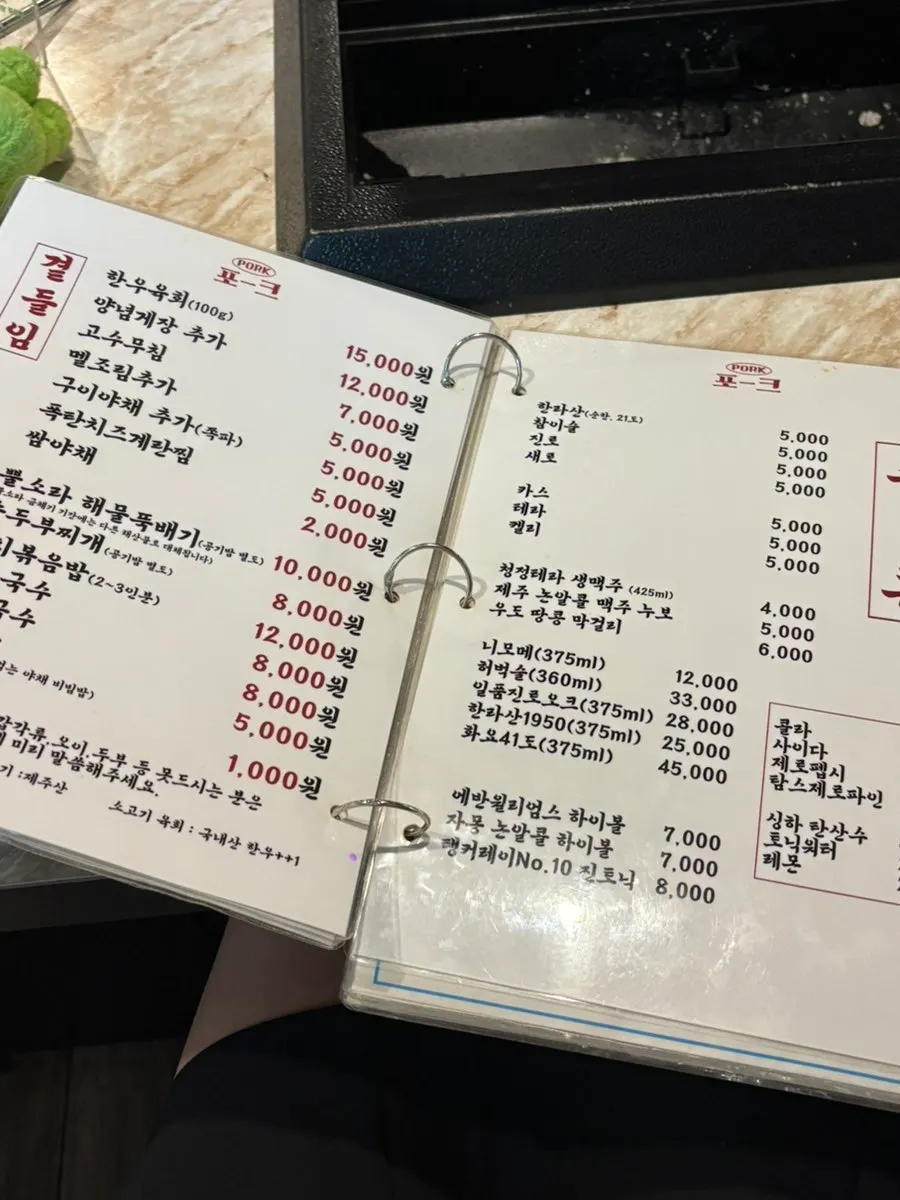 곁들임
PORK
포크
한우육회(100g) 15,000원
양념게장 추가 12,000원
고수무침 7,000원
멜조림추가 5,000원
구이야채 추가(쪽파) 5,000원
폭탄치즈계란찜 5,000원
쌈야채 2,000원
뿔소라 해물뚝배기(공기밥 별도) 10,000원
뿔소라 금채기 기간에는 다른 해산물로 대체됩니다)
두부찌개(공기밥 별도) 8,000원
볶음밥(2~3인분) 12,000원
국수 8,000원
국수 8,000원
5,000원
없는 야채 비빔밥)
1,000원
갑각류, 오이, 두부 등 못드시는 분은
미리 말씀해주세요.
기 : 제주산
소고기 육회 : 국내산 한우++1
PORK
포크
한라산(순한, 21도) 5,000
참이슬 5,000
진로 5,000
새로 5,000
카스 5,000
테라 5,000
켈리 5,000
청정테라 생맥주 (425ml) 4,000
제주 논알콜 맥주 누보 5,000
우도 땅콩 막걸리 6,000
니모메(375ml) 12,000
허벅술(360ml) 33,000
일품진로오크(375ml) 28,000
한라산1950(375ml) 25,000
화요41도(375ml) 45,000
에반윌리엄스 하이볼 7,000
자몽 논알콜 하이볼 7,000
탱커레이No.10 진토닉 8,000
콜라
사이다
제로펩시
탐스제로파인
싱하 탄산수
토닉워터
레몬